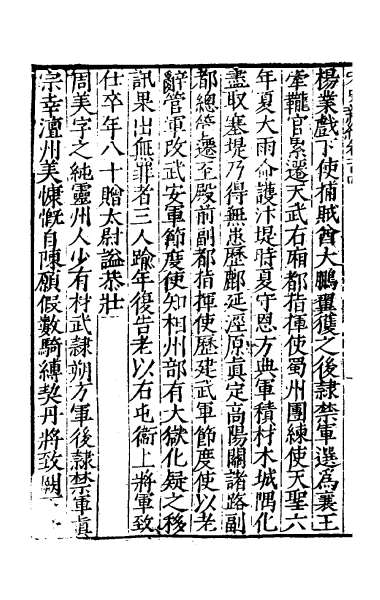 楊業戲下使捕賊酋大鵬翼獲之後隷禁軍選爲襄王
牽攏官累遷天武右厢都指揮使蜀州團練使天聖六
年夏大雨命護汴堤時夏守恩方典軍積材木城隅化
盡取塞堤乃得無患歷鄜延涇原真定高陽關諸路副
都總管遷至殿前副都指揮使歷建武軍節度使以老
辭管軍改武安軍節度使知相州部有大獄化疑之移
訊果出無罪者三人踰年復告老以右屯衞上將軍致
仕卒年八十贈太尉諡恭壯
周美字之純靈州人少有材武隷朔方軍後隷禁軍真
宗幸澶州美慷慨自陳願假數騎縛契丹將致闕下